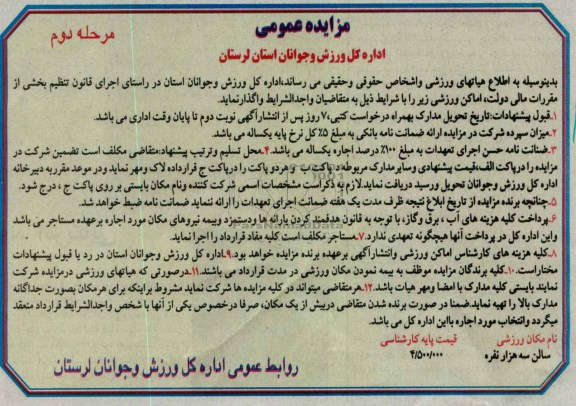 مزایده عمومی
مرحله دوم
اداره کل ورزش وجوانان استان لرستان
بدینوسیله به اطلاع هیاتهای ورزشی واشخاص حقوقی وحقیقی می رساند،اداره کل ورزش وجوانان استان در راستای اجرای قانون تنظیم بخشی از
مقررات مالی دولت، اماکن ورزشی زیر را با شرایط ذیل به متقاضیان واجدالشرایط واگذارنماید.
۱.قبول پیشنهادات:تاریخ تحویل مدارک بهمراه درخواست کتبی،۷ روز پس از انتشارآگهی نوبت دوم تا پایان وقت اداری می باشد.
۲.میزان سپرده شرکت در مزایده ارائه ضمانت نامه بانکی به مبلغ ۵٪ کل نرخ پایه یکساله می باشد.
۳.ضمانت نامه حسن اجرای تعهدات به مبلغ ۱۰۰٪ درصد اجاره یکساله می باشد.۴.محل تسلیم وترتیب پیشنهاد:متقاضی مکلف است تضمین شرکت در
مزایده را درپاکت الف،قیمت پیشنهادی وسایرمدارک مربوطه درپاکت ب وهردو پاکت را درپاکت ج قرارداده لاک ومهر نماید ودر موعد مقرربه دبیرخانه
اداره کل ورزش وجوانان تحویل ورسید دریافت نماید.لازم به ذکراست مشخصات اسمی شرکت کننده ونام مکان بایستی بر روی پاکت ج ، درج شود.
۵.چنانچه برنده مزایده از تاریخ ابلاغ نتیجه ظرف مدت یک هفته ضمانت اجرای تعهدات را ارائه ننماید ضمانت نامه ضبط خواهد شد.
۶.پرداخت کلیه هزینه های آب ، برق وگاز، با توجه به قانون هدفمند کردن یارانه ها ودستمزد وبیمه نیروهای مکان مورد اجاره برعهده مستاجر می باشد
واین اداره کل در پرداخت آنها هیچگونه تعهدی ندارد.۷.مستاجر مکلف است کلیه مفاد قرارداد را اجرا نماید.
۸.کلیه هزینه های کارشناس اماکن ورزشی وانتشارآگهی برعهده برنده مزایده خواهد بود.۹.اداره کل ورزش وجوانان استان در رد یا قبول پیشنهادات
مختاراست.۱۰.کلیه برندگان مزایده موظف به بیمه نمودن مکان ورزشی در مدت قرارداد می باشند.۱۱.درصورتی که هیاتهای ورزشی درمزایده شرکت
نمایند بایستی کلیه مدارک با امضا ومهر هیات باشد.۱۲.هرمتقاضی میتواند در کلیه مزایده ها شرکت نماید مشروط براینکه برای هرمکان بصورت جداگانه
مدارک بالا را تهیه نماید.ضمنا در صورت برنده شدن متقاضی دربیش از یک مکان، صرفا درخصوص یکی از آنها با شخص واجدالشرایط قرارداد منعقد
میگردد وانتخاب مورد اجاره بااین اداره کل می باشد.
نام مکان ورزشی قیمت پایه کارشناسی
سالن سه هزار نفره ۴/۵۰۰/۰۰۰
روابط عمومی اداره کل ورزش وجوانان لرستان